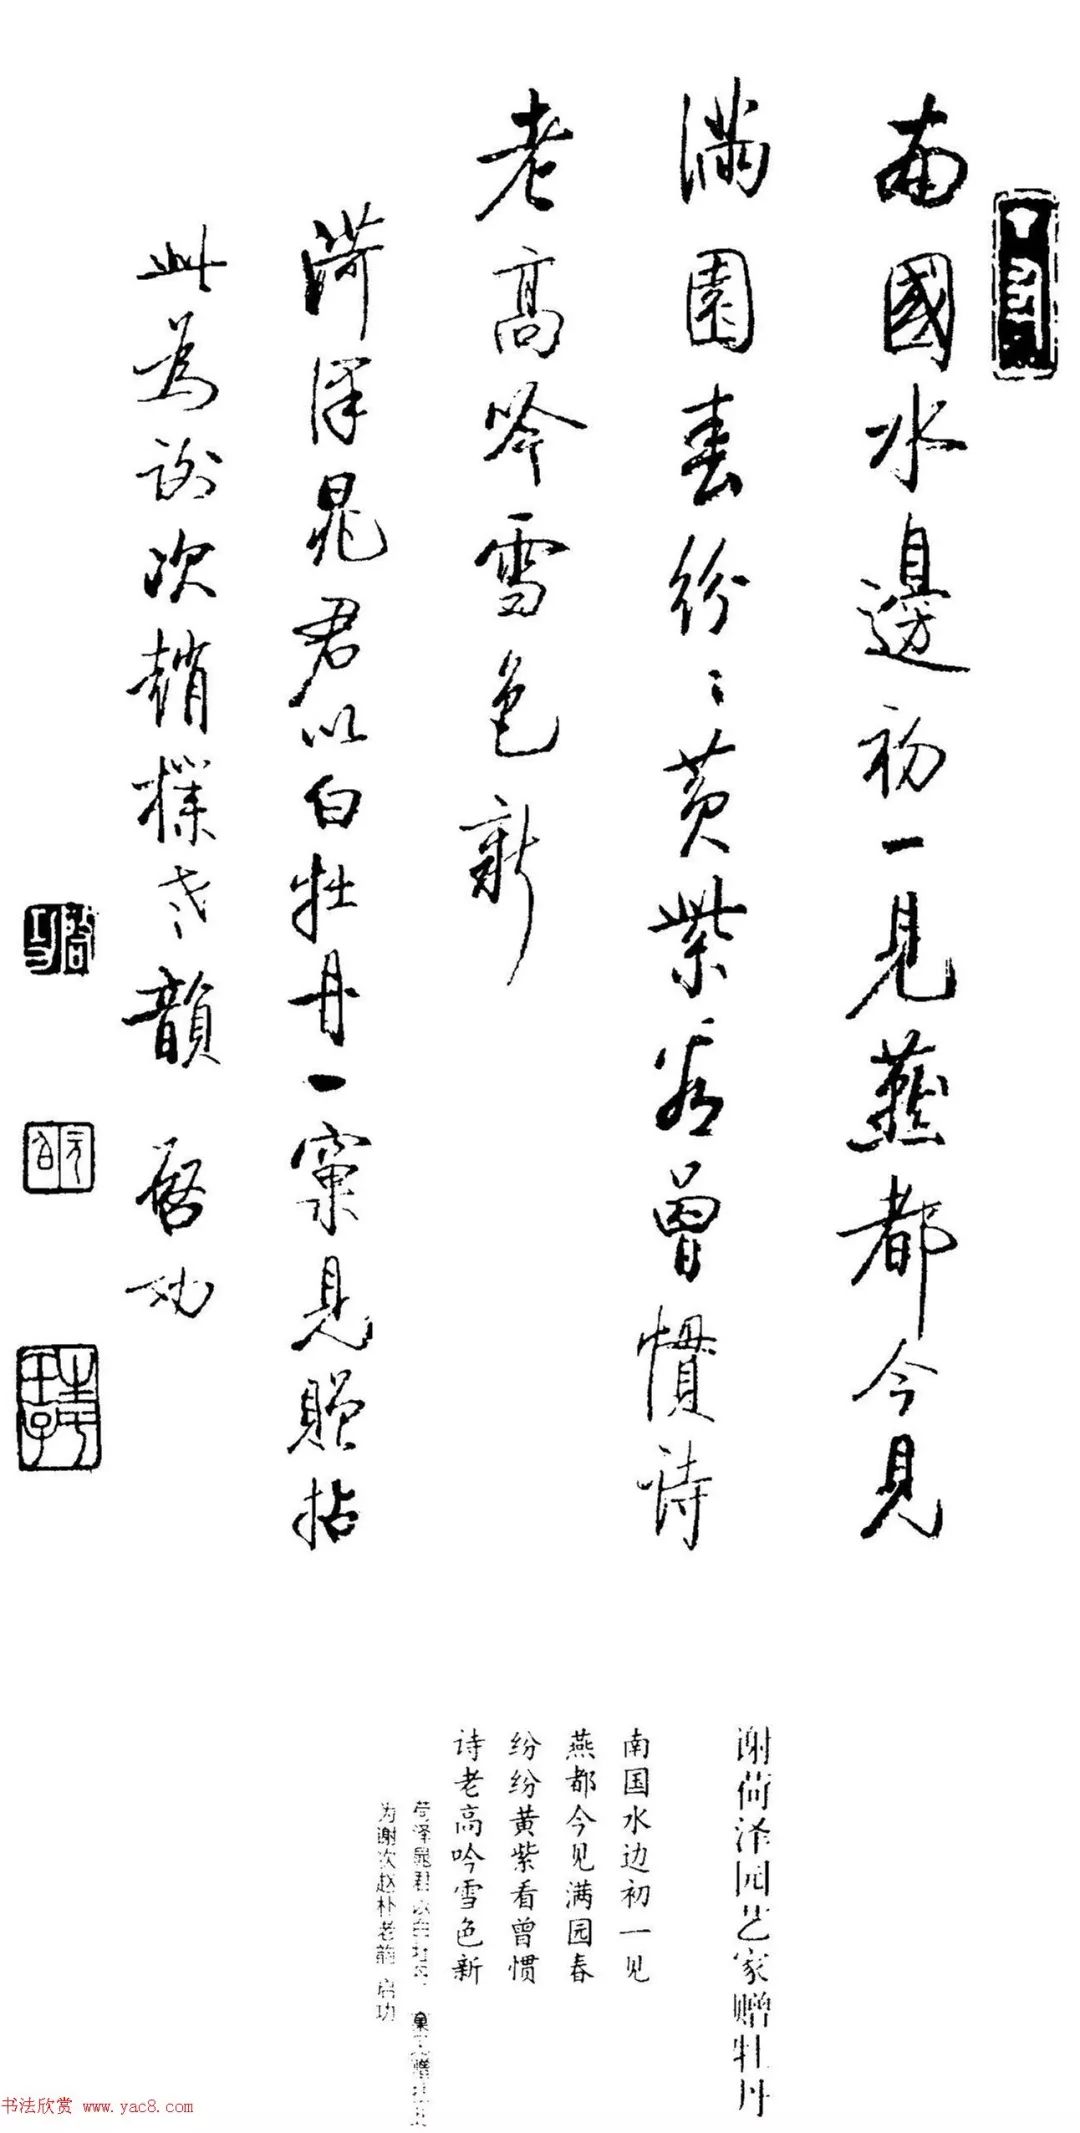 南國水邊初一見燕都今見
滿園春紛〻黄紫看曾慣詩
老高吟雪色新
菏澤晁君以白牡丹一窠見贈拈
此為謝次趙樸老〻韻 啓功
谢荷泽园艺家赠牡丹
南国水边初一见
燕都今见满园春
纷纷黄紫看曾惯
诗老高吟雪色新
为谢次赵朴老韵 启功
书法欣赏 www.yac8.com